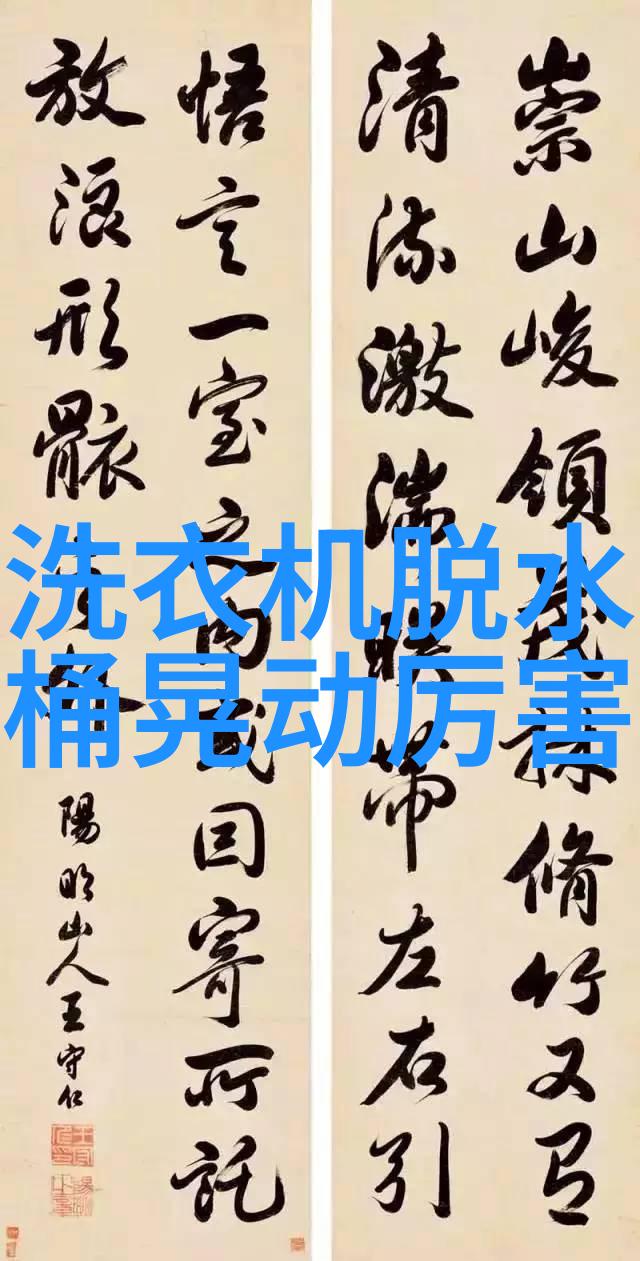 洗衣机脱水
桶晃动厉害
崇山峻領茂林脩竹又有
清流激湍暎帶左右引
悟言一室之内或因寄所託
放浪形骸
陽明山人王守仁